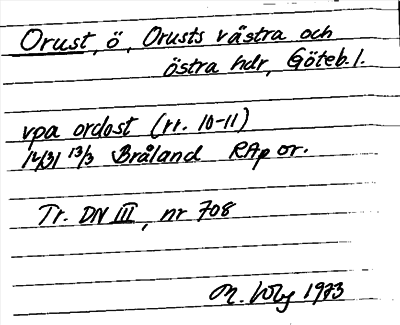 Orust, ö, Orusts västra och
östra hdr, Göteb. l.
vpa ordost (rr. 10-11)
1431 13/3 Bråland RAp or.
Tr. DN III, nr 708
M. 1973